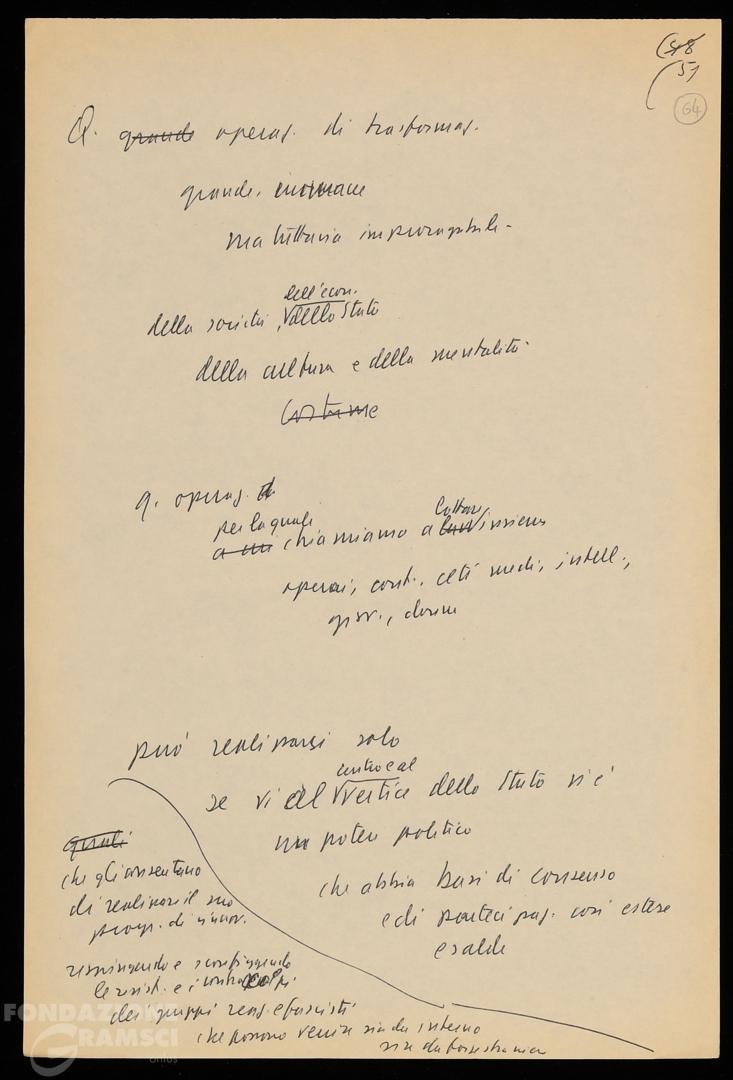 51
64
Q. grande operaz. di trasformaz.
grande, immane
ma tuttavia improrogabile -
dell'econ.
della società, dello Stato
della cultura e della mentalità.
Costume
q. operaz. di
per la quale
a chiamiamo a lottare insieme
operai, cont., ceti medi, intell.,
giov., donne
può realizzarsi solo
centro e al
se vi al vertice dello Stato vi è
un potere politico
che abbia basi di consenso
e di partecipaz. così estese
e salde
quali
che gli consentano
di realizzare il suo
progr. di rinnov.
respingendo e sconfiggendo
le resist. e i contraccolpi
dei gruppi reaz. e fascisti
che possono venire sia da interno
sia da forze straniere
FONDAZIONE
GRAMSCI
onlus